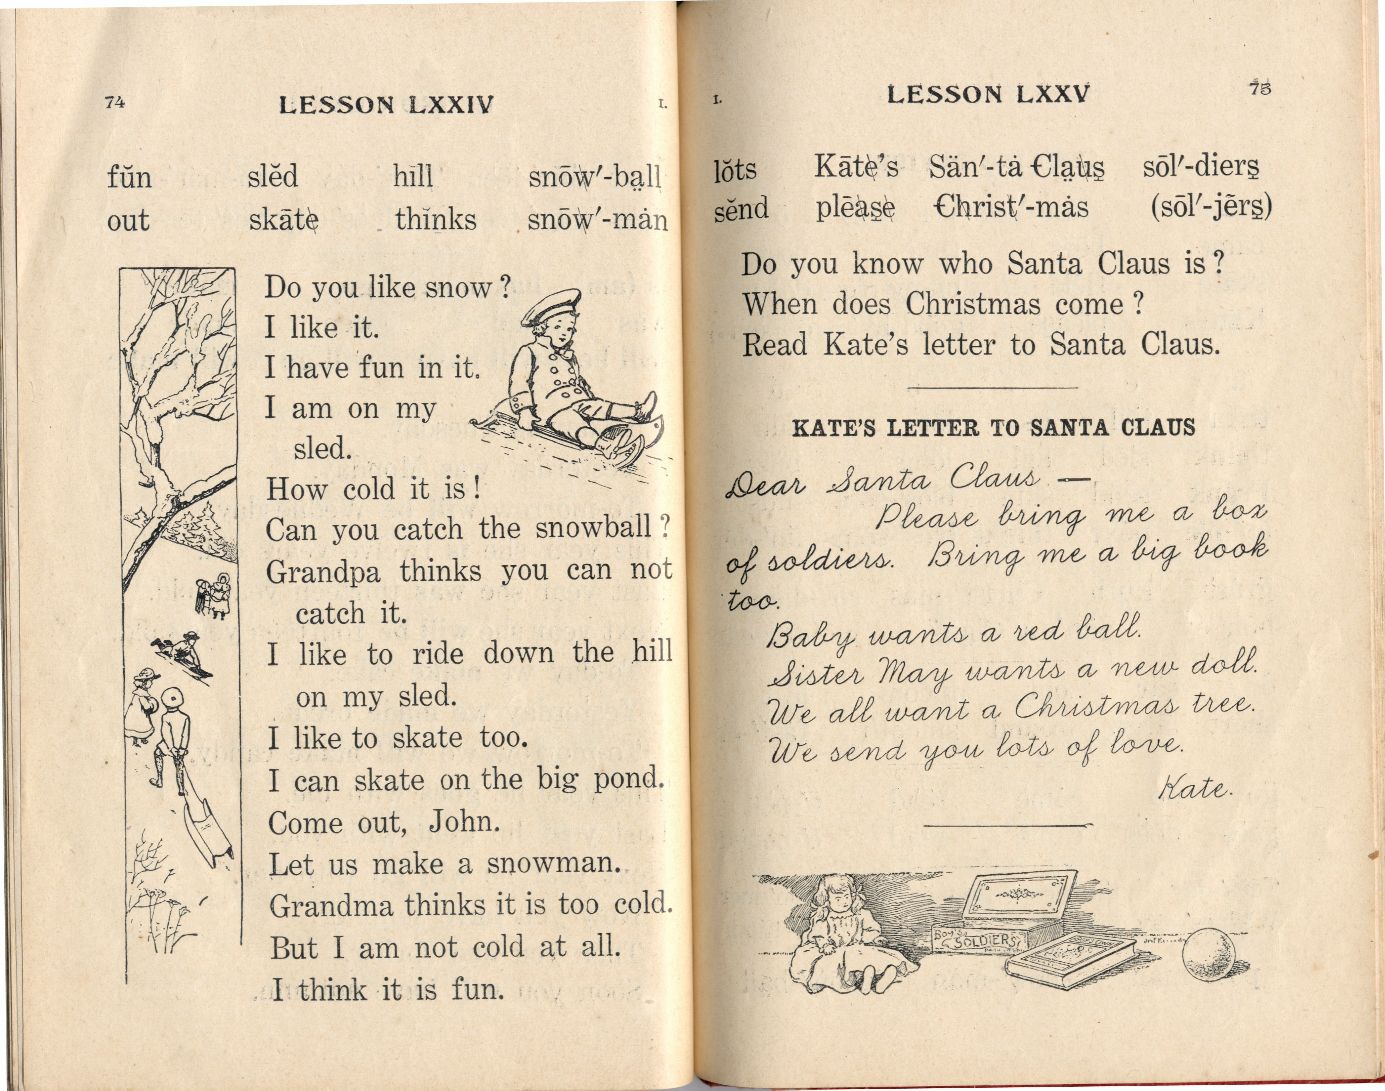 74 LESSON LXXIV I.
fŭn slĕd hĭll snōw′-ba̤ll
out skāte thĭnks snōw′-mȧn
Do you like snow?
I like it.
I have fun in it.
I am on my
sled.
How cold it is!
Can you catch the snowball?
Grandpa thinks you can not
catch it.
I like to ride down the hill
on my sled.
I like to skate too.
I can skate on the big pond.
Come out, John.
Let us make a snowman.
Grandma thinks it is too cold.
But I am not cold at all.
I think it is fun.
I. LESSON LXXV 75
lŏts Kāte's Sän′-tȧ Cla̤us̱ sōl′-diers̱
sĕnd plēas̱e Christ′-mȧs (sōl′-jẽrs̱)
Do you know who Santa Claus is?
When does Christmas come?
Read Kate's letter to Santa Claus.
KATE'S LETTER TO SANTA CLAUS
Dear Santa Claus —
Please bring me a box
of soldiers. Bring me a big book
too.
Baby wants a red ball.
Sister May wants a new doll.
We all want a Christmas tree.
We send you lots of love.
Kate.
BOX
SOLDIERS